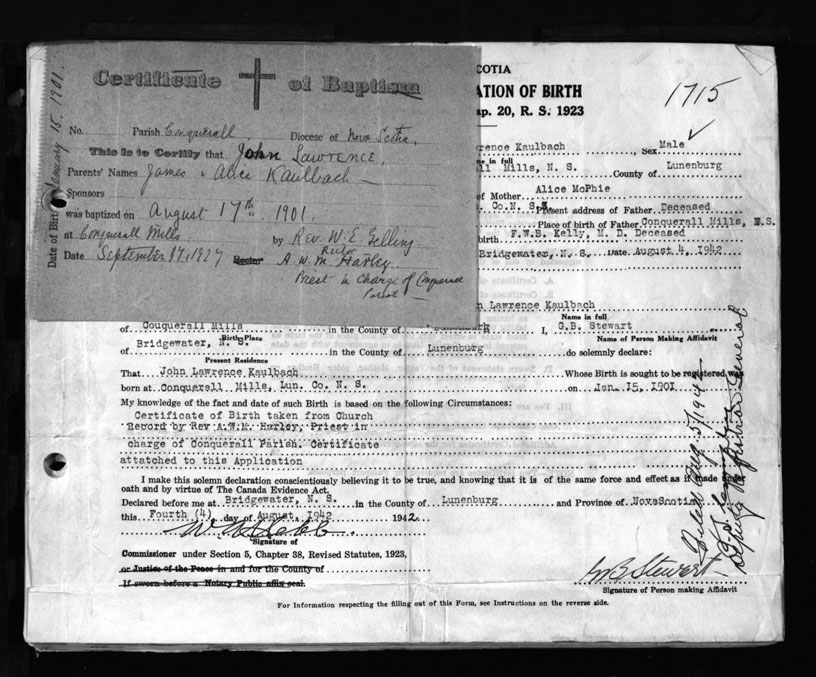 Certificate of Baptism
No. Parish Conquerall Diocese of Nova Scotia.
This is to Certify that John Lawrence,
Parents' Names James & Alice Kaulbach
Sponsors
was baptized on August 17th 1901.
at Conquerall Mills by Rev. W. E. Gelling
Rector
Date September 17, 1927 Rector A. W. M. Harley
Priest in Charge of Conquerall
Parish
Date of Birth January 15, 1901.
COTIA
ATION OF BIRTH
ap. 20, R. S. 1923
1715
rence Kaulbach Sex Male
me in full
ll Mills, N. S. County of Lunenburg
of Mother Alice McPhie
Co. N. S. Present address of Father Deceased
Place of birth of Father Conquerall Mills, N.S.
birth F.W.B. Kelly, M. D. Deceased
Bridgewater, N. S. Date August 4, 1942
n Lawrence Kaulbach
Name in full
of Couquerall Mills in the County of Lunenburg I, G.B. Stewart
Birth Place Name of Person Making Affidavit
of Bridgewater, N. S. in the County of Lunenburg do solemnly declare:
Present Residence
That John Lawrence Kaulbach Whose Birth is sought to be registered was
born at Conquerall Mills, Lun. Co. N. S. on Jan. 15, 1901
My knowledge of the fact and date of such Birth is based on the following Circumstances:
Certificate of Birth taken from Church
Record by Rev A.W.M. Harley, Priest in
charge of Conquerall Parish. Certificate
attatched to this Application
I make this solemn declaration conscientiously believing it to be true, and knowing that it is of the same force and effect as if made under
oath and by virtue of The Canada Evidence Act.
Declared before me at Bridgewater, N. S. in the County of Lunenburg and Province of Nova Scotia
this Fourth (4) day of August, 1942 1942.
Signature of
Commissioner under Section 5, Chapter 38, Revised Statutes, 1923,
or Justice of the Peace in and for the County of
If sworn before a Notary Public affix seal.
G B Stewart
Signature of Person making Affidavit
For Information respecting the filling out of this Form, see Instructions on the reverse side.
Filed Aug 5/1942
Deputy Registrar General